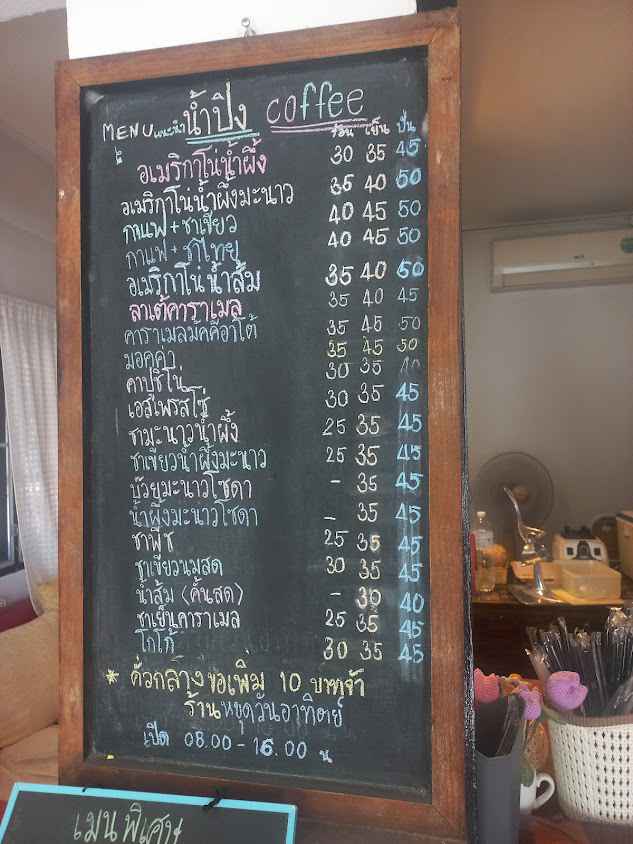 MENU แนะนำ น้ำปิง coffee
ร้อน เย็น ปั่น
อเมริกาโน่น้ำผึ้ง 30 35 45
อเมริกาโน่น้ำผึ้งมะนาว 35 40 50
กาแฟ+ชาเขียว 40 45 50
กาแฟ+ชาไทย 40 45 50
อเมริกาโน่น้ำส้ม 35 40 50
ลาเต้คาราเมล 35 40 45
คาราเมลมัคคีอาโต้ 35 45 50
มอคค่า 35 45 50
คาปูชิโน่ 30 35 40
เอสเพรสโซ่ 30 35 45
ชามะนาวน้ำผึ้ง 25 35 45
ชาเขียวน้ำผึ้งมะนาว 25 35 45
บ๊วยมะนาวโซดา - 35 45
น้ำผึ้งมะนาวโซดา - 35 45
ชาพีช 25 35 45
ชาเขียวนมสด 30 35 45
น้ำส้ม (คั้นสด) - 30 40
ชาเย็นคาราเมล 25 35 45
โกโก้ 30 35 45
* คั่วกลาง ขอเพิ่ม 10 บาทจ้า
ร้านหยุดวันอาทิตย์
เปิด 08.00 - 16.00 น
เมนูพิเศษ